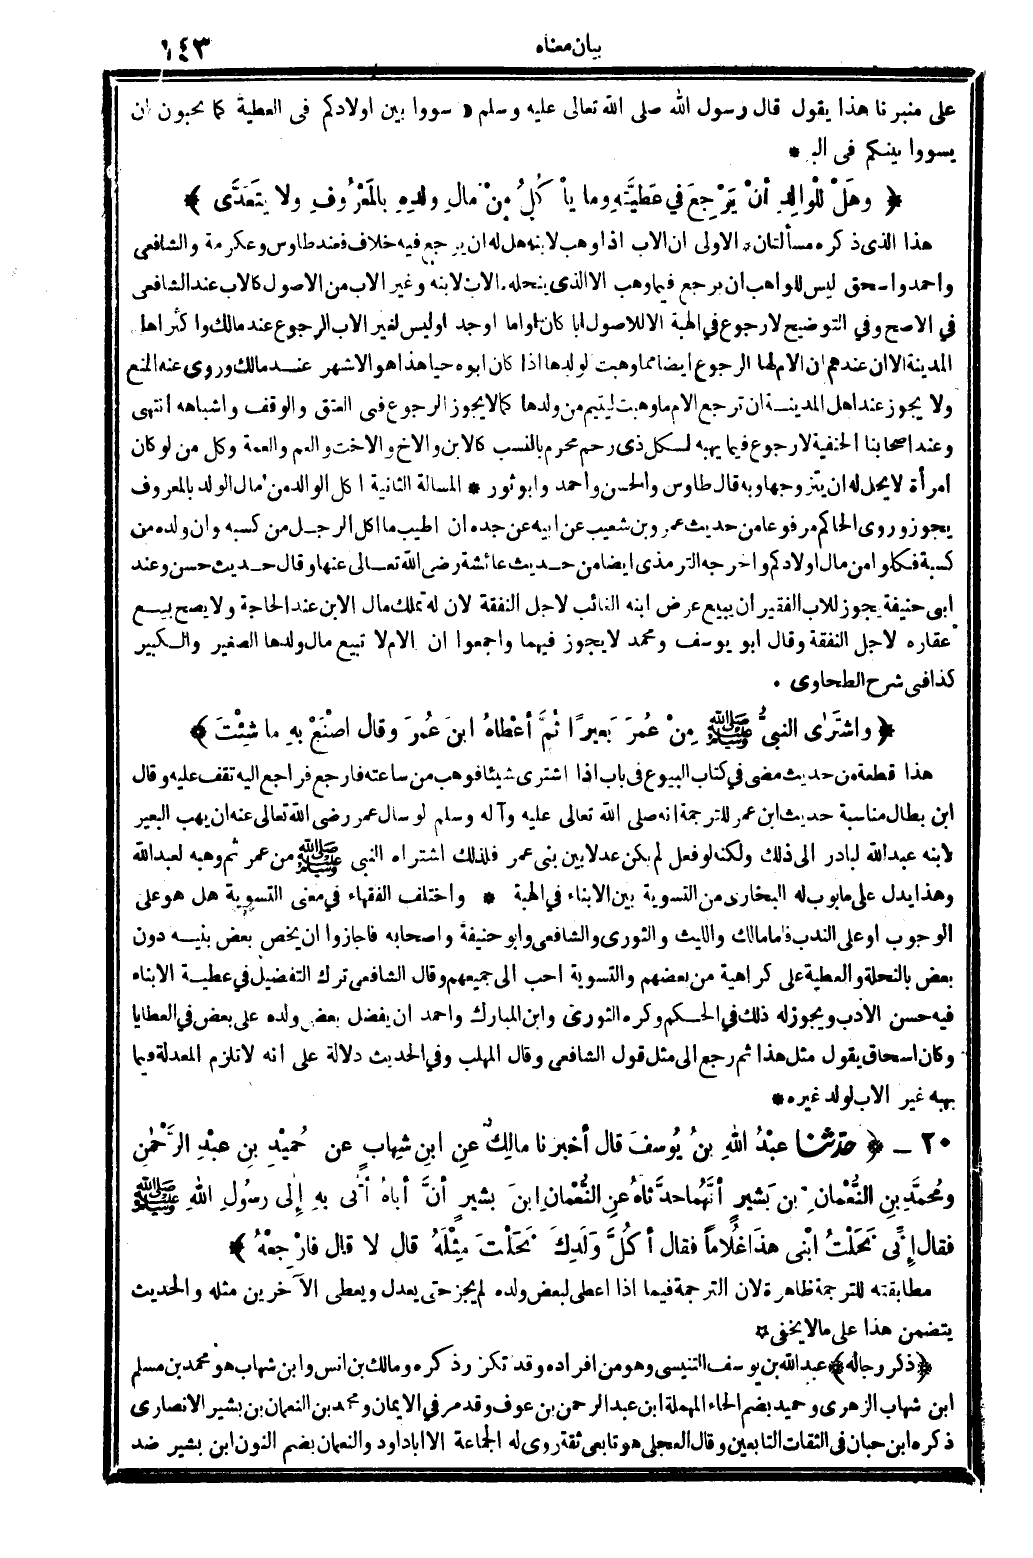 بيان معناه
١٤٣
على منبرنا هذا يقول قال رسول الله صلى الله تعالى عليه وسلم « سووا بين اولادكم فى العطية كما تحبون ان
يسووا بينكم فى البر *
﴿ وهَلْ لِلْوالِدِ أنْ يَرْجِعَ في عَطِيَّتِهِ وما يأْكُلُ مِنْ مالِ ولَدِهِ بِالمَعْرُوفِ ولا يتَعَدَّى ﴾
هذا الذى ذكره مسألتان * الاولى ان الاب اذا وهب لابنه هل له ان يرجع فيه خلاف فعند طاوس وعكرمة والشافعى
واحمد واسحق ليس للواهب ان يرجع فيما وهب الا الذى ينحله الاب لابنه وغير الاب من الاصول كالاب عند الشافعى
في الاصح وفي التوضيح لا رجوع في الهبة الا للاصول ابا كان او اما او جد او ليس لغير الاب الرجوع عند مالك واكثر اهل
المدينة الا ان عندهم ان الام لها الرجوع ايضا مما وهبت لولدها اذا كان ابوه حيا هذا هو الاشهر عند مالك وروى عنه المنع
ولا يجوز عند اهل المدينة ان ترجع الام ما وهبت ليتيم من ولدها كما لا يجوز الرجوع فى العتق والوقف واشباهه انتهى
وعند اصحابنا الحنفية لا رجوع فيما يهبه لكل ذى رحم محرم بالنسب كالابن والاخ والاخت والعم والعمة وكل من لو كان
امرأة لا يحل له ان يتزوجها وبه قال طاوس والحسن واحمد وابو ثور * المسالة الثانية اكل الوالد من مال الولد بالمعروف
يجوز وروى الحاكم مرفوعا من حديث عمرو بن شعيب عن ابيه عن جده ان اطيب ما اكل الرجل من كسبه وان ولده من
كسبه فكلوا من مال اولادكم واخرجه الترمذى ايضا من حديث عائشة رضى الله تعالى عنها وقال حديث حسن وعند
ابى حنيفة يجوز للاب الفقير ان يبيع عرض ابنه الغائب لاجل النفقة لان له تملك مال الابن عند الحاجة ولا يصح بيع
عقاره لاجل النفقة وقال ابو يوسف ومحمد لا يجوز فيهما واجمعوا ان الام لا تبيع مال ولدها الصغير والكبير
كذا فى شرح الطحاوى .
﴿ واشتَرَى النبيُّ ﷺ مِنْ عُمَرَ بَعِيرًا ثُمَّ أعْطاهُ ابنَ عُمرَ وقال اصْنَعْ بِهِ ما شِئْتَ ﴾
هذا قطعة من حديث مضى في كتاب البيوع فى باب اذا اشترى شيئا فوهب من ساعته فارجع فراجع اليه تقف عليه وقال
ابن بطال مناسبة حديث ابن عمر للترجمة انه صلى الله تعالى عليه وآله وسلم لو سال عمر رضى الله تعالى عنه ان يهب البعير
لابنه عبدالله لبادر الى ذلك ولكنه لو فعل لم يكن عدلا بين بنى عمر فلذلك اشتراه النبى ﷺ من عمر ثم وهبه لعبدالله
وهذا يدل على ما بوب له البخارى من التسوية بين الابناء في الهبة * واختلف الفقهاء في معنى التسوية هل هو على
الوجوب او على الندب فاما مالك والليث والثورى والشافعى وابو حنيفة واصحابه فاجازوا ان يخص بعض بنيه دون
بعض بالنحلة والعطية على كراهية من بعضهم والتسوية احب الى جميعهم وقال الشافعى ترك التفضيل في عطية الابناء
فيه حسن الادب ويجوز له ذلك في الحكم وكره الثورى وابن المبارك واحمد ان يفضل بعض ولده على بعض في العطايا
وكان اسحاق يقول مثل هذا ثم رجع الى مثل قول الشافعى وقال المهلب وفي الحديث دلالة على انه لا تلزم المعدلة فيما
يهبه غير الاب لولد غيره *
٢٠ ـ ﴿ حدّثنا عبْدُ اللهِ بنُ يُوسفَ قال أخبرنا مالِكٌ عنِ ابنِ شهابٍ عن حُميْدِ بنِ عبْدِ الرَّحْمٰنِ
ومُحمَّدِ بنِ النُّعْمانِ بنِ بَشيرٍ أنَّهُما حدَّثاهُ عنِ النُّعْمانِ ابنَ بشيرٍ أنَّ أباهُ أتى بهِ إلى رسُولِ اللهِ ﷺ
فقال إنِّى نَحَلْتُ ابْنِى هذَا غُلاماً فقال أكُلَّ ولَدِكَ نَحَلْتَ مِثْلَهُ قال لا قال فارْجِعْهُ ﴾
مطابقته للترجمة ظاهرة لان الترجمة فيما اذا اعطى لبعض ولده لم يجز حتى يعدل ويعطى الآخرين مثله والحديث
يتضمن هذا على ما لا يخفى *
﴿ذكر رجاله﴾ عبدالله بن يوسف التنيسى وهو من افراده وقد تكرر ذكره ومالك بن انس وابن شهاب هو محمد بن مسلم
ابن شهاب الزهرى وحميد بضم الحاء المهملة ابن عبد الرحمن بن عوف وقد مر في الايمان ومحمد بن النعمان بن بشير الانصارى
ذكره ابن حبان في الثقات التابعين وقال العجلى هو تابعى ثقة روى له الجماعة الا ابا داود والنعمان بضم النون ابن بشير ضد